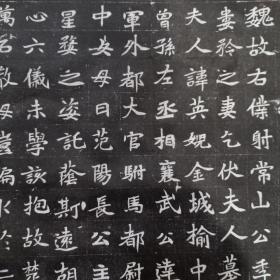 魏故右僕射常山公
婁矜之妻乞伏夫人墓
夫人諱英娥金城揄中
曾孫左丞相襄武公
軍外都大官駙馬都尉
中女母曰范陽長公主
星婺之姿託蔭斯遠胡
心六儀未學該抱故